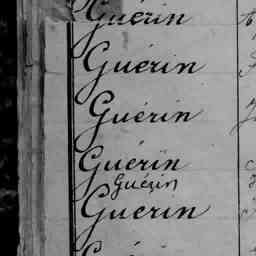 Guérin
Guérin
Guérin
Guérin
Guérin
Guerin